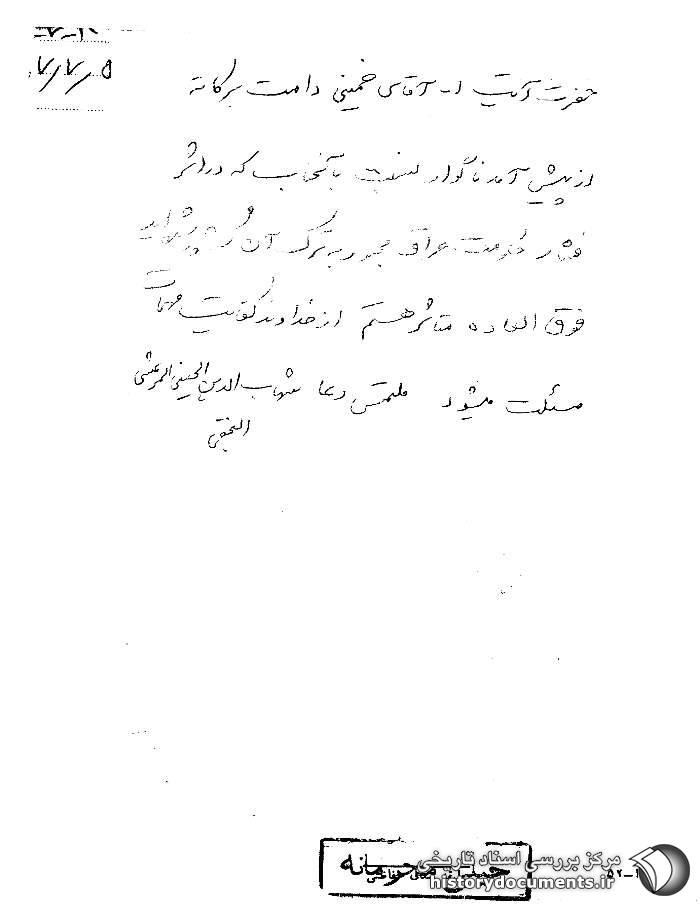 ۷/۷/۵
حضرت آیت ا... آقای خمینی دامت برکاته
از پیش آمد ناگوار نسبت بآنجناب که در اثر
فشار حکومت عراق مجبور به ترک آن کشور شده‌اید
فوق العاده متأثر هستم از خداوند کفایت مهمات
مسئلت میشود ملتمس دعا شهاب الدین الحسینی المرعشی
النجفی
خیلی محرمانه
مرکز بررسی اسناد تاریخی
historydocuments.ir